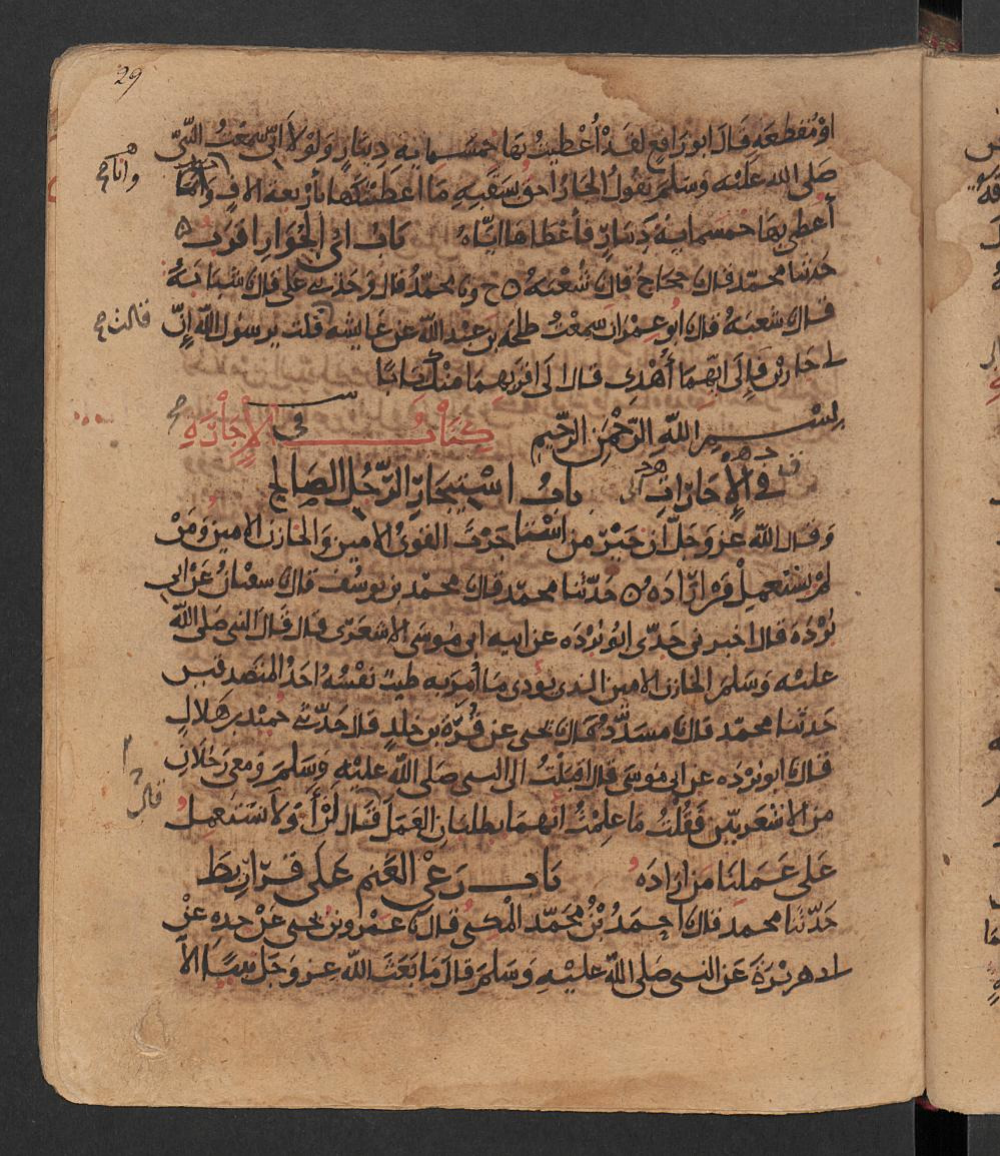 29
او مقطعه قال ابو رافع لقد أُعْطيتُ بها خمسمايه دينارٍ ولولا انى سمعتُ النبىّ
صلى الله عليه وسلم يقول الجارُ احق بسقبه ما اعطيتكها باربعه الافٍ وانما
وانا
أُعطى بها خمسمايه دينارٍ فاعطاها اياه باب اىُّ الجوار اقرب
حدثنا محمد قال نا حجاج قال نا شعبه ح ونا محمد قال وحدثنى على قال نا شبابه
قال نا شعبة قال نا ابو عمران سمعت طلحه بن عبد الله عن عايشه قلت يرسول الله إنّ
قالت
لى جارين فإلى ايهما أُهدى قال الى اقربهما منك بابا
بسم الله الرحمن الرحيم كتاب فى الإجارة
فى الإجارات باب استيجار الرجل الصالح
وقال الله عز وجل ان خير من استاجرت القوىُّ الامين والخازن الامين ومن
لم يستعمل من اراده حدثنا محمد قال نا محمد بن يوسف قال نا سفيان عن ابى
بردة قال اخبرنى جدى ابو بردة عن ابيه ابى موسى الاشعرى قال قال النبى صلى الله
عليه وسلم الخازن الامين الذى يودى ما أُمر به طيبة نفسُه احدُ المتصدقين
حدثنا محمد قال نا مسدد قال نا يحيى عن قرة بن خلد قال حدثنى حميد بن هلال
قال نا ابو بردة عن ابى موسى قال اقبلتُ الى النبى صلى الله عليه وسلم ومعى رجلان
من الاشعريين فقلتُ ما علمتُ انهما يطلبان العمل فقال لن أو لا نستعمل
قال
على عملنا من اراده باب رعى الغنم على قراريط
حدثنا محمد قال نا احمد بن محمد المكى قال نا عمرو بن يحيى عن جده عن
ابى هريرة عن النبى صلى الله عليه وسلم قال ما بعث الله عز وجل نبيا الا